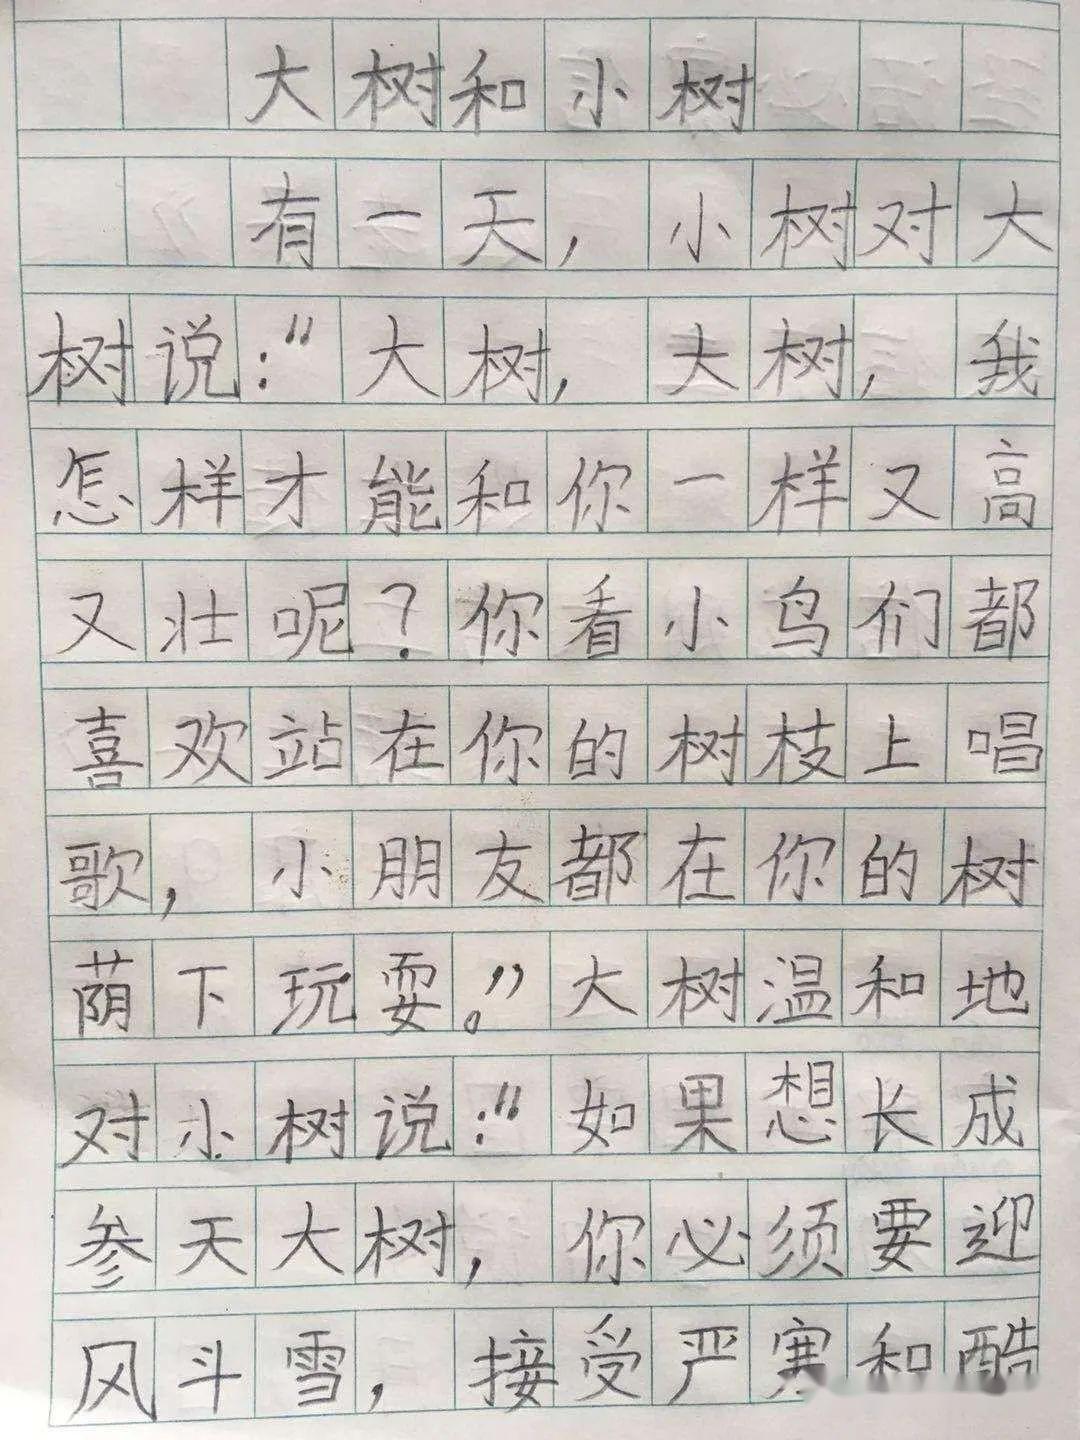 大树和小树
有一天，小树对大
树说：“大树，大树，我
怎样才能和你一样又高
又壮呢？你看小鸟们都
喜欢站在你的树枝上唱
歌，小朋友都在你的树
荫下玩耍。”大树温和地
对小树说：“如果想长成
参天大树，你必须要迎
风斗雪，接受严寒和酷